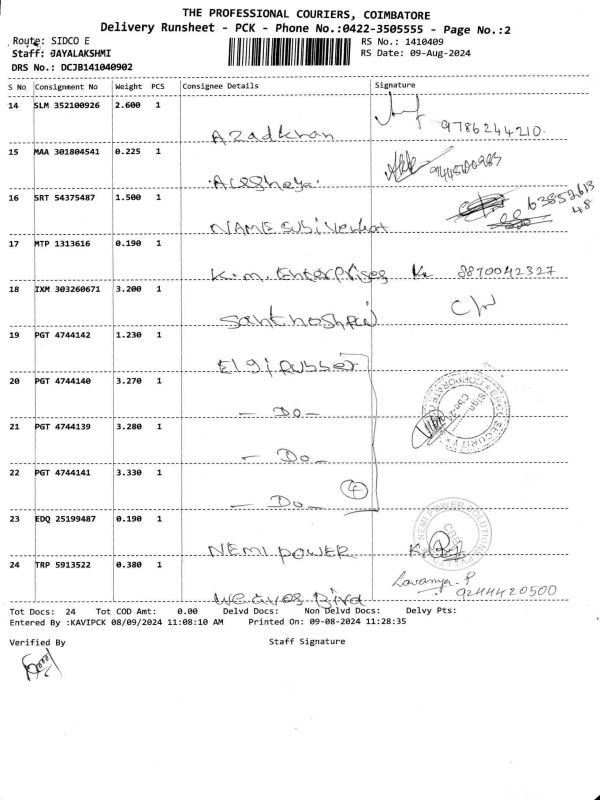 THE PROFESSIONAL COURIERS, COIMBATORE
Delivery Runsheet - PCK - Phone No.:0422-3505555 - Page No.:2
Route: SIDCO E
Staff: JAYALAKSHMI
DRS No.: DCJB141040902
RS No.: 1410409
RS Date: 09-Aug-2024
S No Consignment No Weight PCS Consignee Details Signature
14 SLM 352100926 2.600 1 Azadkhan 9786244210.
15 MAA 301804541 0.225 1
16 SRT 54375487 1.500 1 NAME Subi Venkat 63852613
48
17 MTP 1313616 0.190 1 K.m. Enterprises 8870042327
18 IXM 303260671 3.200 1 C/W
19 PGT 4744142 1.230 1 Elgi Rubber
20 PGT 4744140 3.270 1 - Do -
21 PGT 4744139 3.280 1 - Do -
22 PGT 4744141 3.330 1 - Do - 4
23 EDQ 25199487 0.190 1 NEMI POWER
24 TRP 5913522 0.380 1 Weaves Bird Lavanya. P 9244420500
Tot Docs: 24 Tot COD Amt: 0.00 Delvd Docs: Non Delvd Docs: Delvy Pts:
Entered By :KAVIPCK 08/09/2024 11:08:10 AM Printed On: 09-08-2024 11:28:35
Verified By Staff Signature